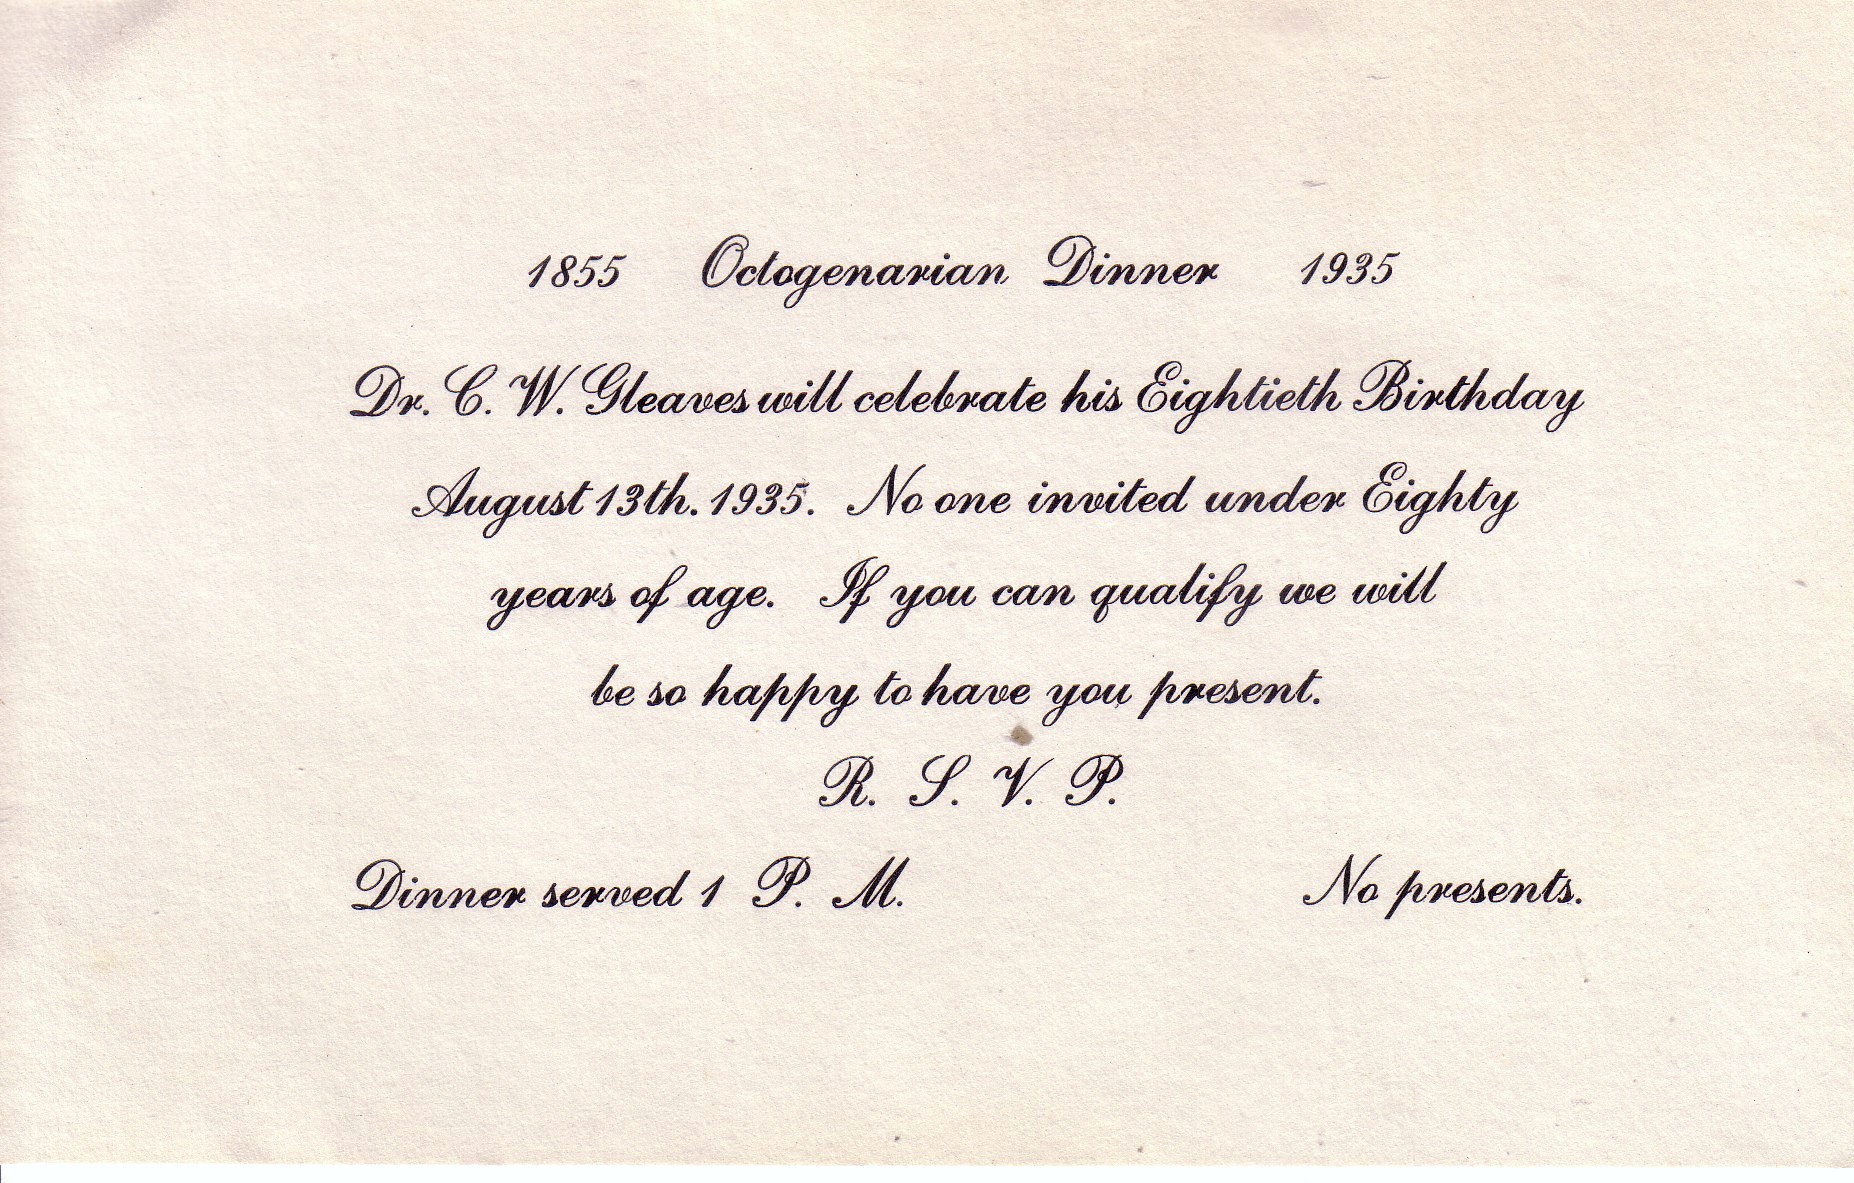 1855 Octogenarian Dinner 1935
Dr. C. W. Gleaves will celebrate his Eightieth Birthday
August 13th. 1935. No one invited under Eighty
years of age. If you can qualify we will
be so happy to have you present.
R. S. V. P.
Dinner served 1 P. M. No presents.